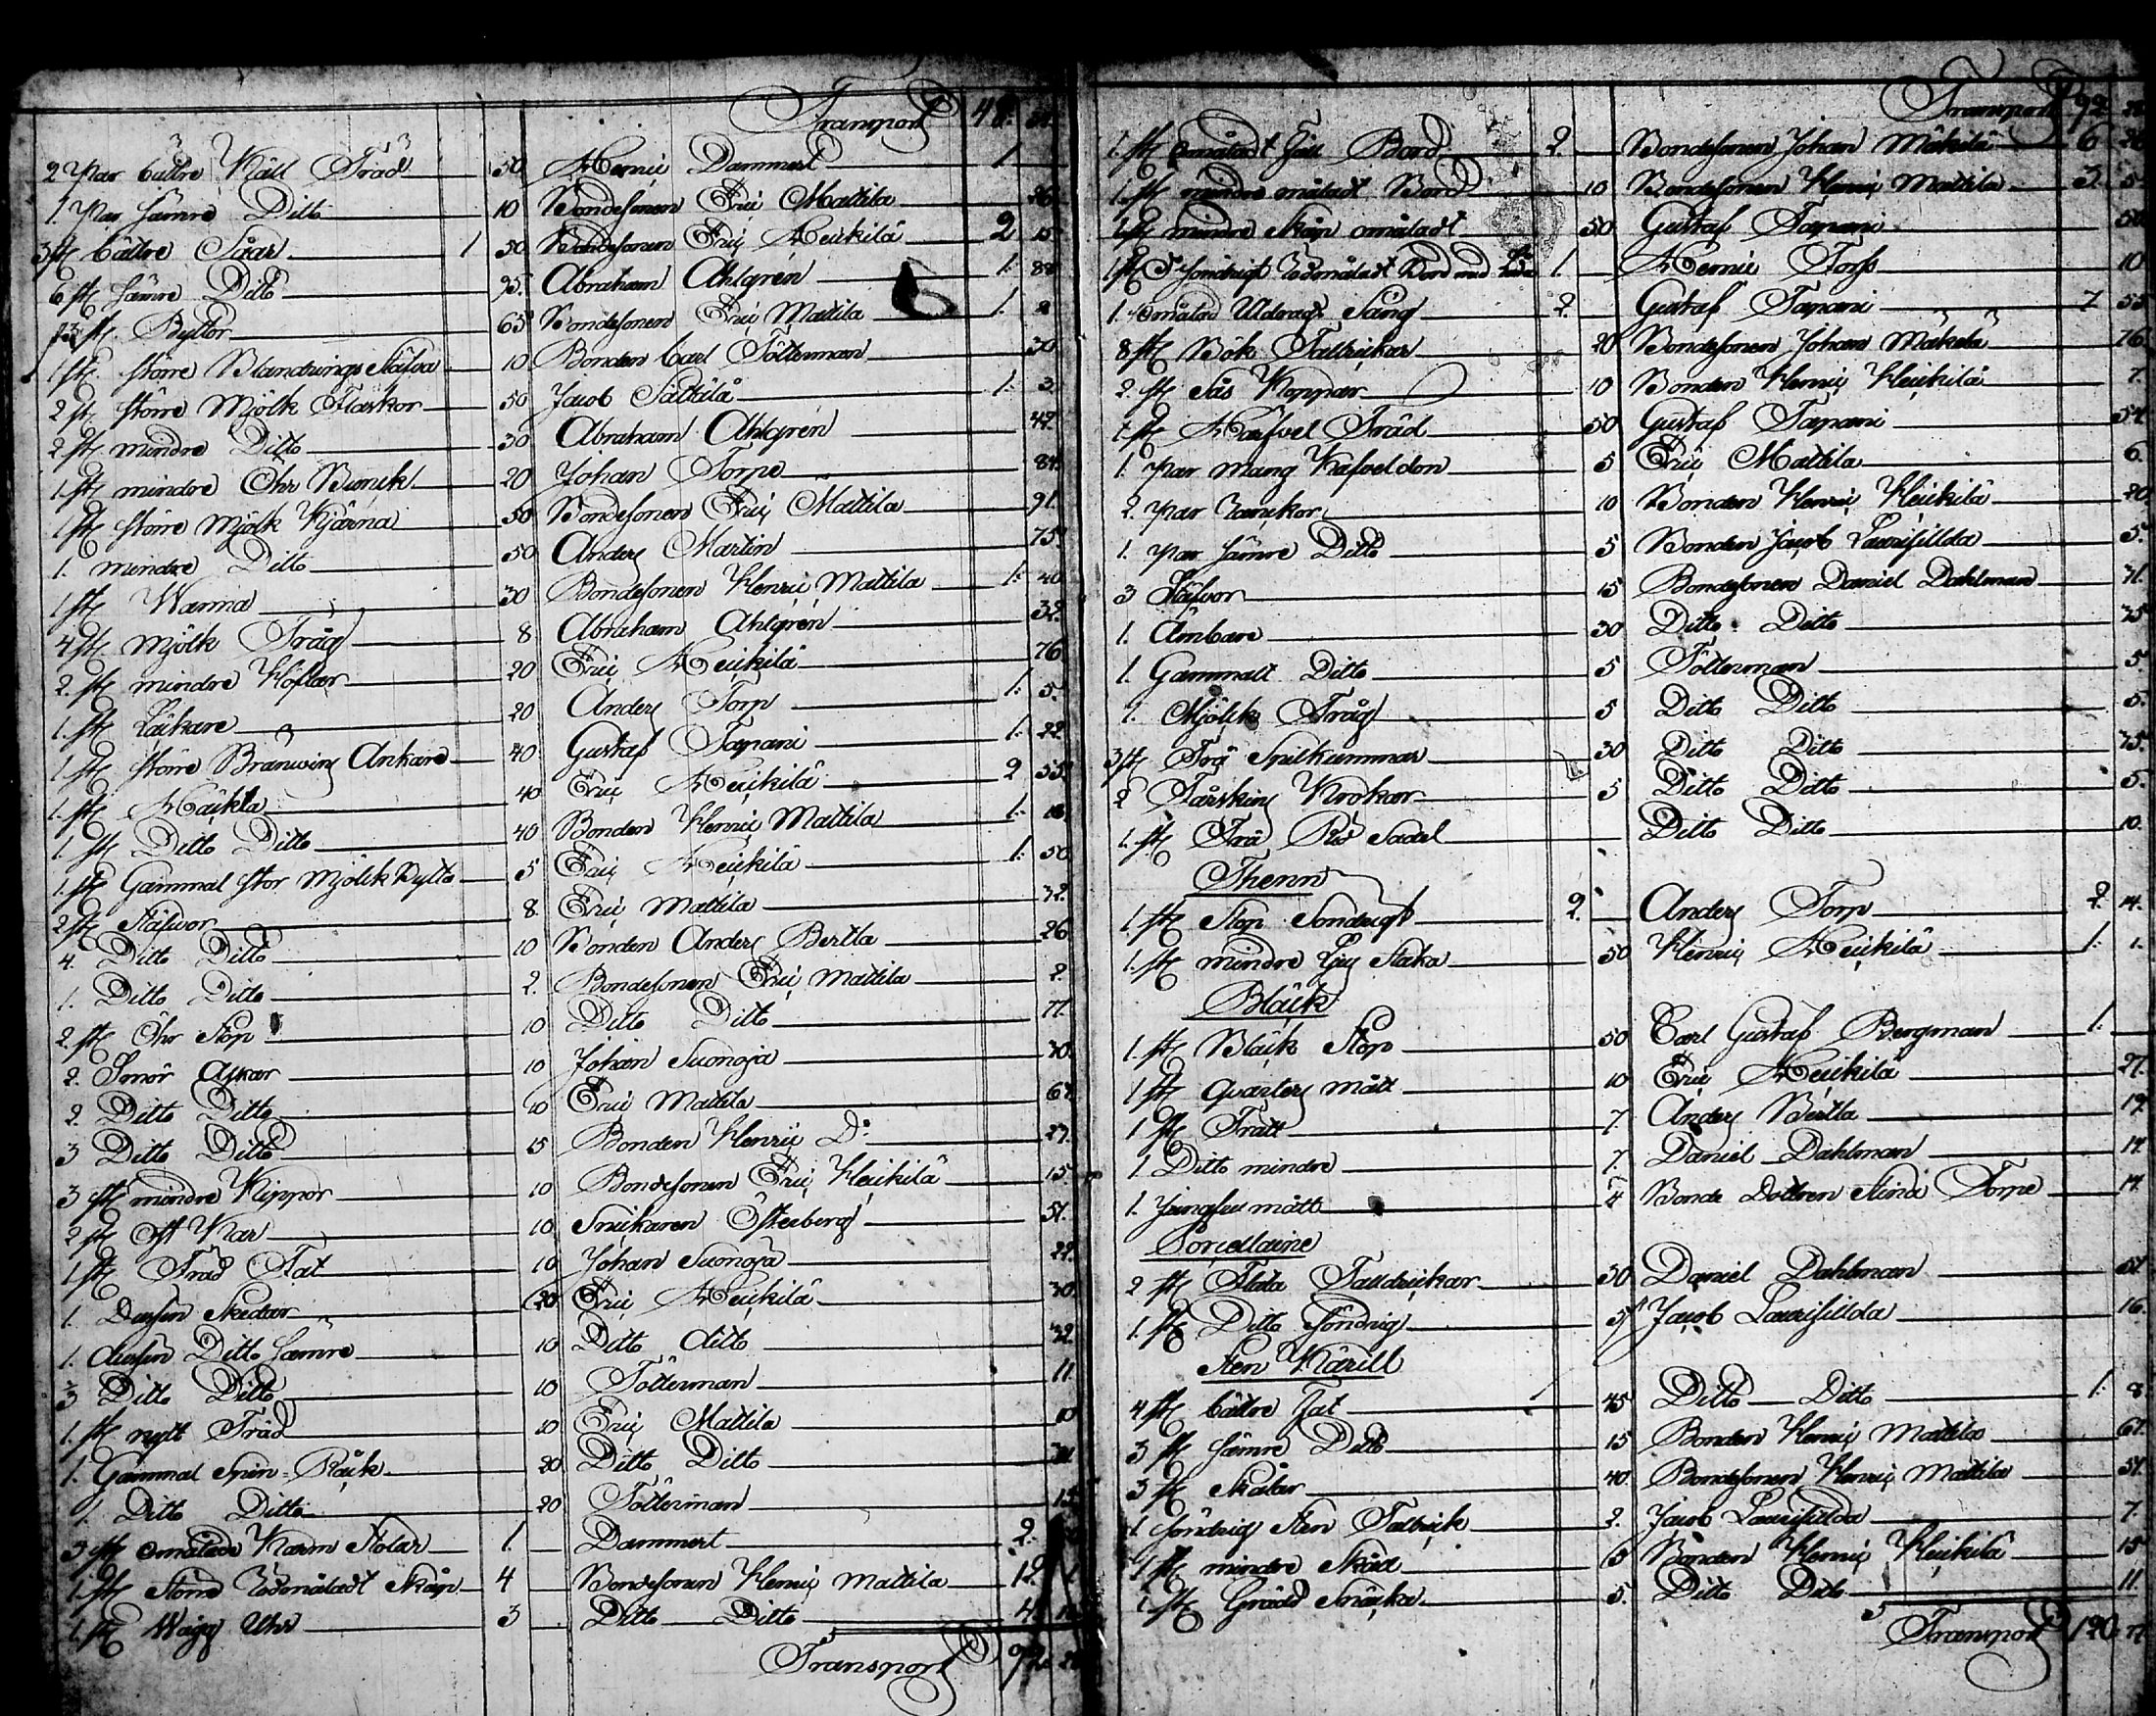 Transport 48.
2 Par bättre Käll Träd 50 Henric Dammert 1
1. Par sämre Ditto 10 Bondesonen Eric Mattila 26
3 st. bättre Såar 1 50 Bondesonen Eric Heickilä 2 15
6 st. sämre Ditto 95. Abraham Ahlgrén 1. 80
st. Byttor 65 Bondesonen Eric Mattila 1. 2
1 st. större Blandnings 10 Bonden Carl Tötterman 30
2 st. större Mjölk Flaskor 50 Jacob Sattila 1. 3.
2 st. mindre Ditto 30 Abraham Ahlgrén 42
1 st. mindre Öhr 20 Johan Torpe 84.
1 st. större Mjölk Kjärna 50 Bondesonen Eric Mattila 91.
1. mindre Ditto 50 Anders Martin 75.
1 st. Wanna 30 Bondesonen Henric Mattila 1. 40
4 st. Mjölk Tråg 8 Abraham Ahlgrén 32.
2. st. mindre 20 Eric Heickilä 76
1. st. 20 Anders Torp 1. 5.
1. st. större Bränwins Ankare 40 Gustaf Tapani 1. 22.
1. st. Häckla 40 Eric Heickilä 2 55.
1. st. Ditto Ditto 40 Bonden Henric Mattila 1.
1. st. Gammal stor Mjölk Bytta 5 Eric Heickilä 1. 50.
2 st. Stäfvor 8. Eric Mattila 32.
4. Ditto Ditto 10 Bonden Anders Bertla 26
1. Ditto Ditto 2. Bondesonen Eric Mattila 2.
2. st. Öhr Stop 10 Ditto Ditto 77.
2. Smör Askar 10 Johan Suonoja 30.
2. Ditto Ditto 10 Eric Mattila
3 Ditto Ditto 15 Bonden Henric D:o 27.
3 st. mindre Kippor 10 Bondesonen Eric Heickilä 15
2 st. Kar 10. Snickaren Österberg 51.
1 st. Träd Fat 10 Johan Suonoja 22.
1. Dussin Skedar 20 Eric Heickilä 30
1. dussin Ditto sämre 10 Ditto ditto 32.
Ditto Ditto 10 Tötterman 11
1. st. nytt Träd 10 Eric Mattila 10
1. Gammal Spin-Råck 20 Ditto Ditto
1. Ditto Ditto 20 Tötterman
3 st. omålade Karm Stolar 1. Dammert 2.
1. st. Större Rödmåladt Skåp 4 Bondesonen Henric Mattila 12
1. st. Wägg Uhr 3 Ditto Ditto 4.
Transport 92.
Transport 92
1. st. omåladt Fäll Bord 2. Bondesonen Johan Mäkilä 6 26
1. st. mindre måladt Bord 10 Bondesonen Henric Mattila 3. 5
1 st. mindre Skåp omåladt 50 Gustaf Tapani 50
1 st. Söndrigt Rödmåladt Bord med 1. Henric Torp 10
1. omålad Utdrags Säng 2. Gustaf Tapani 7 55
8 st. Bök Talrickar 20 Bondesonen Johan Mäkelä 76.
2. st. Sås Koppar 10 Bonden Henric Heickilä 7.
1 st. Träd 50 Gustaf Tapani 54.
1. Par Mang Kafveldon 5 Eric Mattila 6.
2. Par 10 Bonden Henric Heickilä 20.
1. Par sämre Ditto 5 Bonden Jacob Laurisillda 5.
3 Stäfvor 15 Bondesonen Daniel Dahlman 31.
1. Ämbare 30 Ditto Ditto 35
1. Gammalt Ditto 5 Tötterman 5.
1. Mjölk Tråg 5 Ditto Ditto 5.
3 st. Trä Spilkummar 30 Ditto Ditto 35.
2 Krokar 5 Ditto Ditto 5.
1. st. Trä Rid Sadel Ditto Ditto 10.
Thenn
1. st. Stop Söndrigt 2. Anders Torp 2. 14.
1. st. mindre Ljus Staka 50 Henric Heickilä 1. 1.
Bläck
1. st. Bläck Stop 50 Carl Gustaf Bergman 1.
1 st. Qvarters mått 10 Eric Heickilä 27.
1 st. Tratt 7. Anders Bertla 19.
1 Ditto mindre 7. Daniel Dahlman 17.
1. Jungfru mått 4 Bonde Dottren Stina Torpe 17.
Porcellaine
2 st. Flata Talldrickar 30 Daniel Dahlman 51
1. st. Ditto Söndrig 5 Jacob Laurisillda 16.
Sten Kärill
4 st. bättre Fat 45 Ditto Ditto 1. 8
3 st. sämre Ditto 15 Bonden Henric Mattila 61.
3 st. Skålar 40. Bondesonen Henric Mattila 51.
1 söndrig Sten Talrick 2. Jacob Laurisillda 7.
1 st. mindre Skål 6 Bonden Henric Heickilä 15
1 st. Grädd Snäcka 5. Ditto Ditto 11.
Transport 120. 77